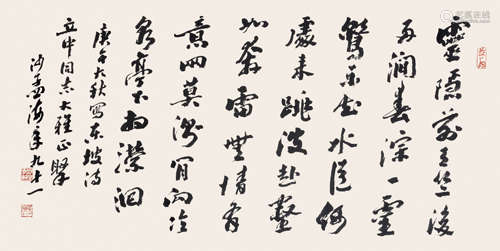 靈隐前天竺後
兩澗春淙一靈
鷲不知水從何
處來跳波赴壑
如奔雷無情有
意兩莫測肯向冷
泉亭下相縈洄
庚午大秋寫東坡詩
立中同志大雅正
沙孟海年九十一